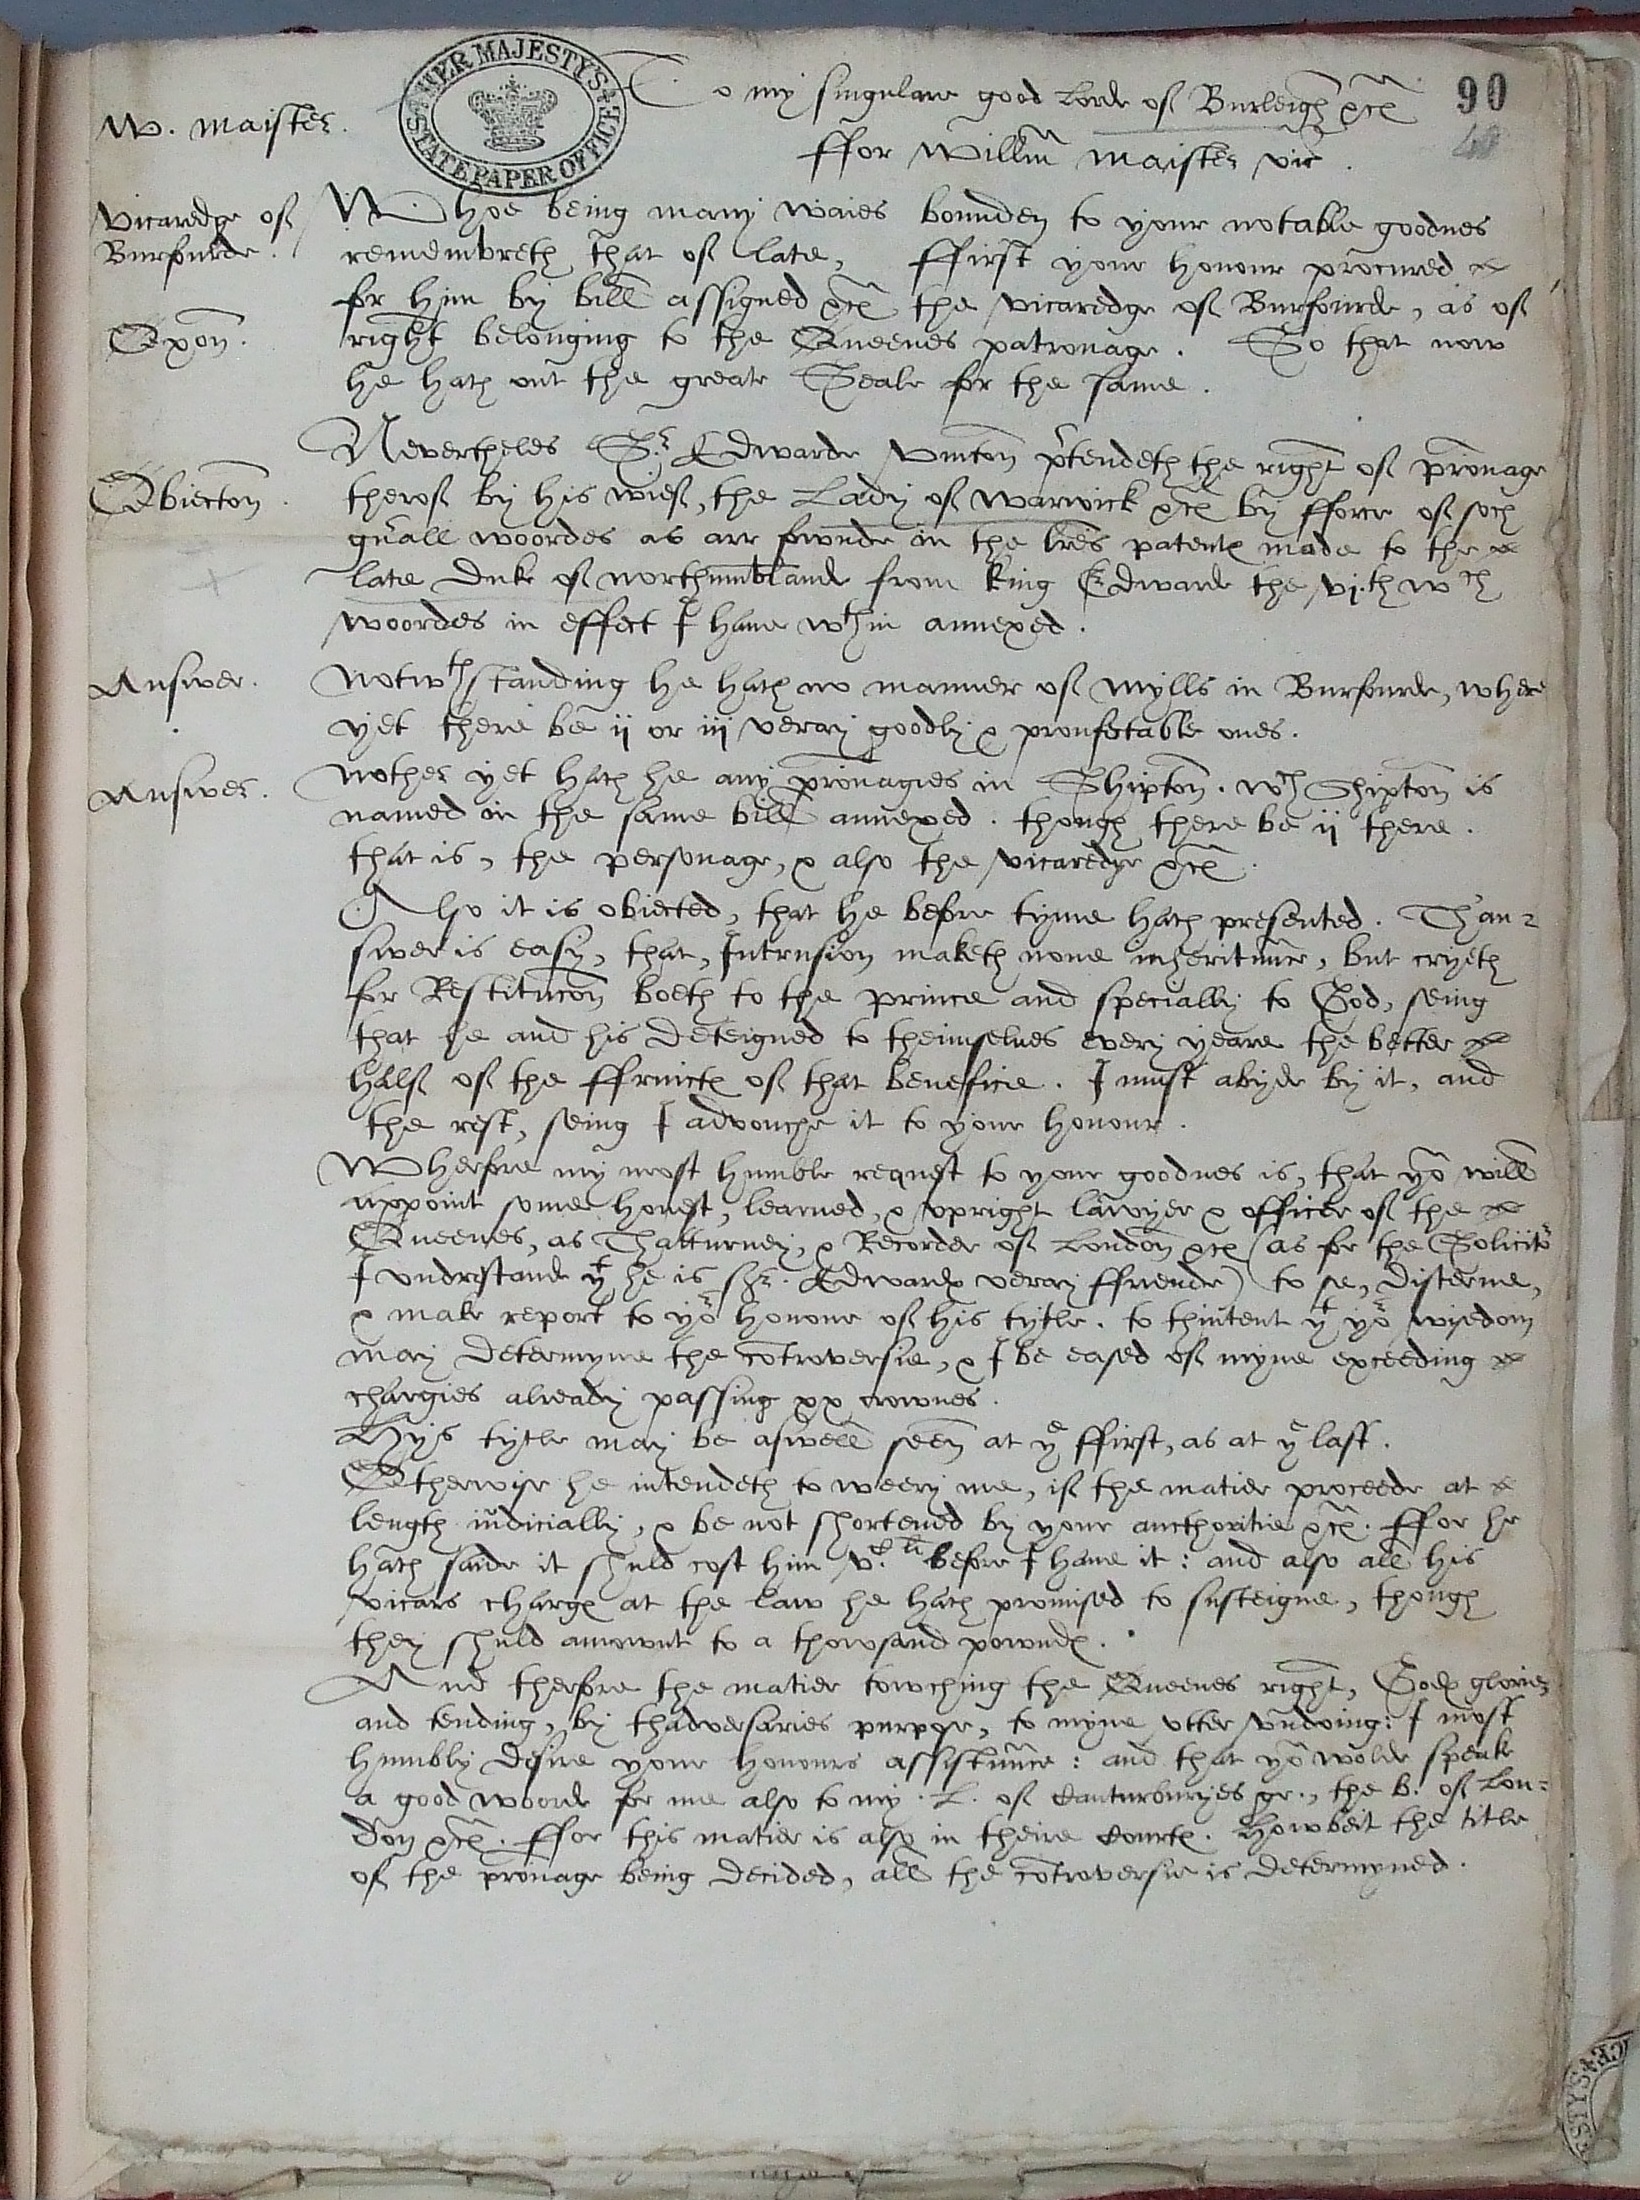 HER MAJESTY'S STATE PAPER OFFICE
90
To my singulare good Lorde of Burleigh &c
W. Maister.
ffor Willm Maister vic.
Vicaredge of
Burfourde.
Whoe being many waies bounden to your notable goodnes
remembreth that of late, ffirst your honour procured
for him by bill assigned &c the vicaredge of Burfourde, as of
Oxon.
right belonging to the Queenes patronage. So that now
he hath out the greate Seale for the same.
Nevertheles Sr. Edwarde Vmton p'tendeth the right of p'ronage
Obiection.
therof by his wief, the Lady of Warwick &c by fforce of soch
gn'all woordes as arr fownde in the l'res patentes made to the
late Duke of Northumblande from King Edwarde the vj.th wch
woordes in effect I haue wthin annexed.
Answer.
Notwthstanding he hath no manner of mylls in Burfourde, where
yet there be ij or iij veray goodly & proufectable ones.
Answer.
Nother yet hath he any p'ronagies in Shipton. wch Shipton is
named in the same bill annexed. though there be ij there.
that is, the personage, & also the vicaredge &c.
Also it is obiected, that he before tyme hath presented. Than=
swer is easy, that, Intrusion maketh none inheritunce, but cryeth
for Restitucon boeth to the prince and specially to God, seing
that he and his deteigned to theimselues every yeare the better
half of the ffruictes of that benefice. I must abyde by it, and
the rest, seing I advouche it to your honour.
Wherfore my most humble request to your goodnes is, that yo will
appoint some honest, learned, & vpright lawyer & officer of the
Queenes, as Thatturney, & Recorder of London &c (as for the Solicitor
I vndrstande yt he is Sr. Edwardes veray ffriende) to se, discerne,
& make report to yor honour of his tytle. to thintent yt yor wisedom
may determyne the cotroversie, & I be eased of myne exceeding
chargies already passing xx crownes.
Hys tytle may be aswell seen at ye ffirst, as at ye last.
Otherwise he intendeth to weery me, if the matier proceede at
length iudicially, & be not shortened by your aucthoritie &c. ffor he
hath saide it shuld cost him vc. li before I haue it: and also all his
vicars charges at the law he hath promised to susteigne, though
they shuld amownt to a thowsand powndes.
And therfore the matier towching the Queenes right, Godes glorie,
and tending, by thadversaries purpose, to myne vtter vndoing: I most
humbly desire your honours assistunce: and that yo wolde speake
a good woorde for me also to my. L. of Canturburyes gr., the B. of Lon=
don &c. ffor this matier is also in theire Courtes. Howbeit the title
of the p'ronage being decided, all the cotroversie is determyned.